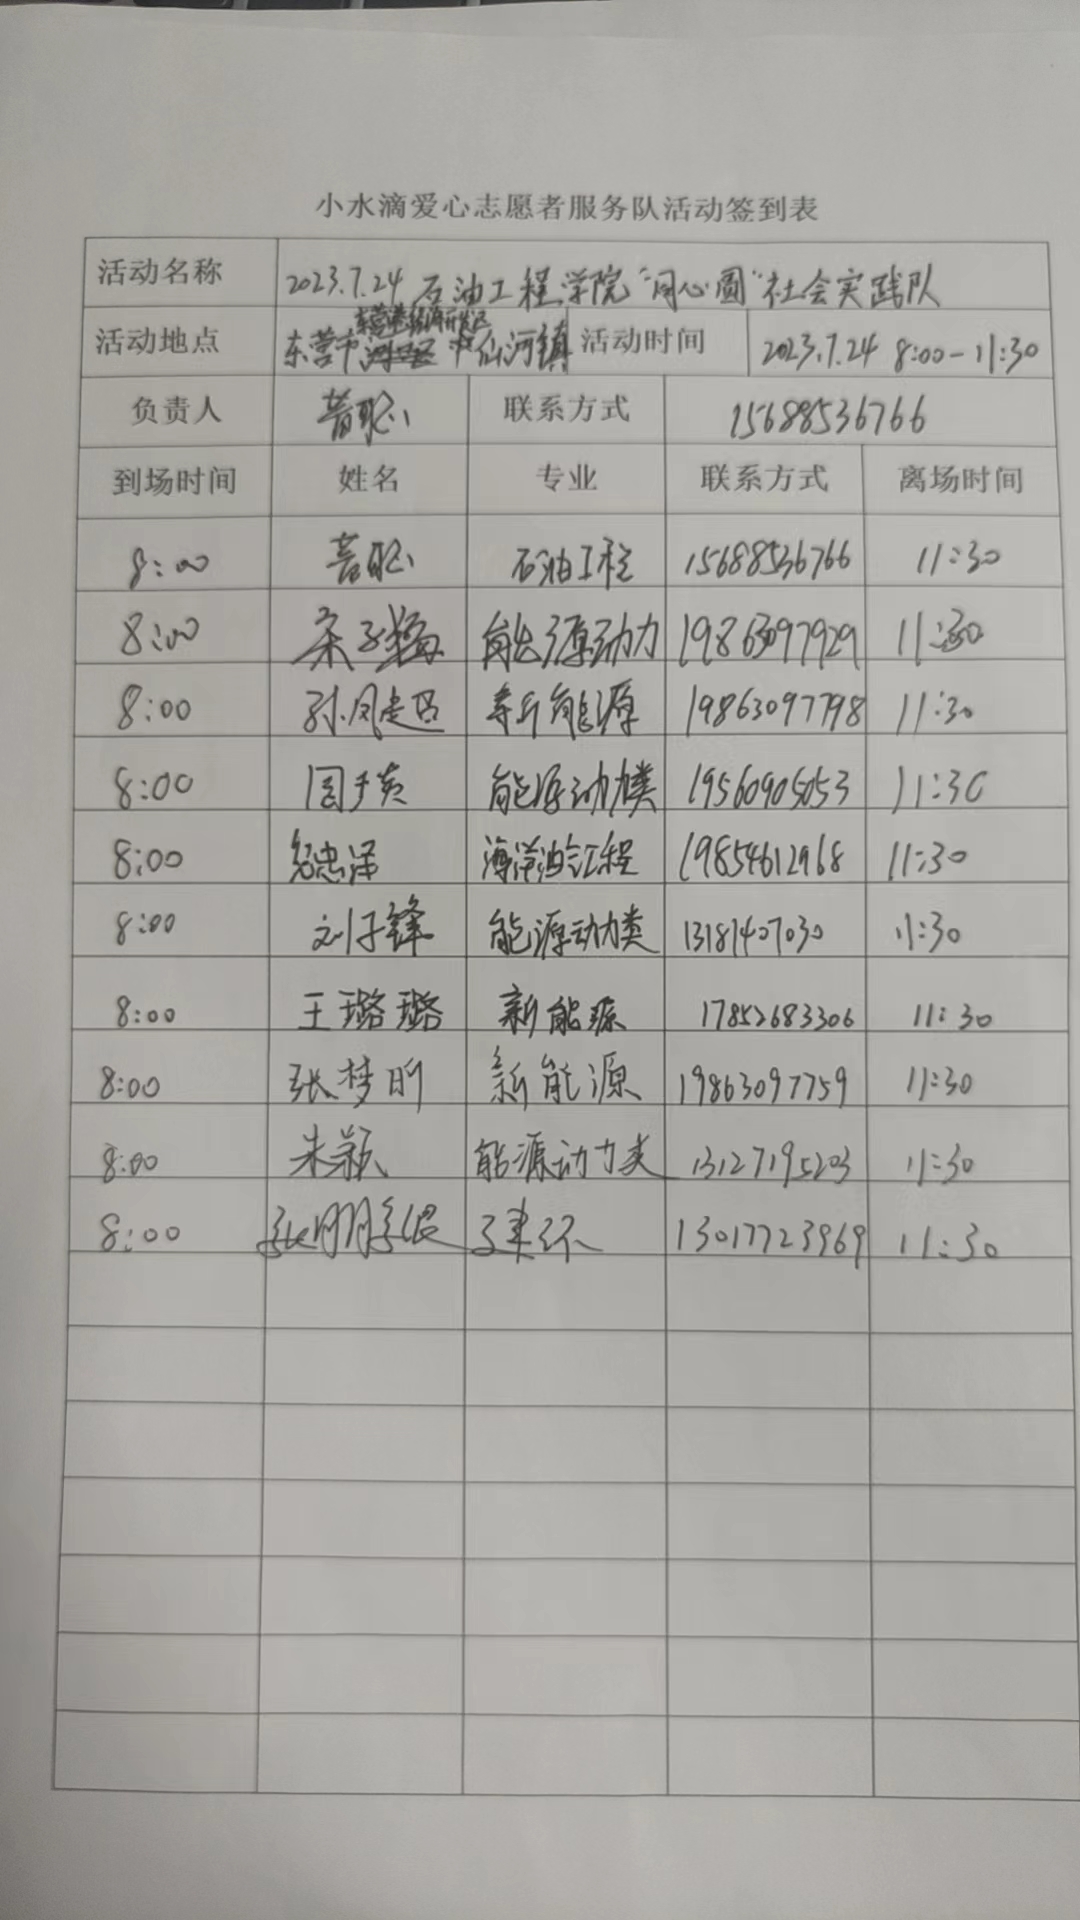 小水滴爱心志愿者服务队活动签到表
活动名称 2023.7.24 石油工程学院"同心圆"社会实践队
活动地点 东营市 仙河镇 活动时间 2023.7.24 8:00-11:30
负责人 联系方式 15688536766
到场时间 姓名 专业 联系方式 离场时间
8:00 石油工程 15688536766 11:30
8:00 能源动力 19863097929 11:30
8:00 孙凤 新能源 19863097798 11:30
8:00 周子 能源动力类 19560905053 11:30
8:00 忠泽 海洋油气工程 19854612968 11:30
8:00 刘子锋 能源动力类 13181407030 11:30
8:00 王璐璐 新能源 17852683306 11:30
8:00 张梦昕 新能源 19863097759 11:30
8:00 朱颖 能源动力类 13127195203 11:30
8:00 13017723969 11:30